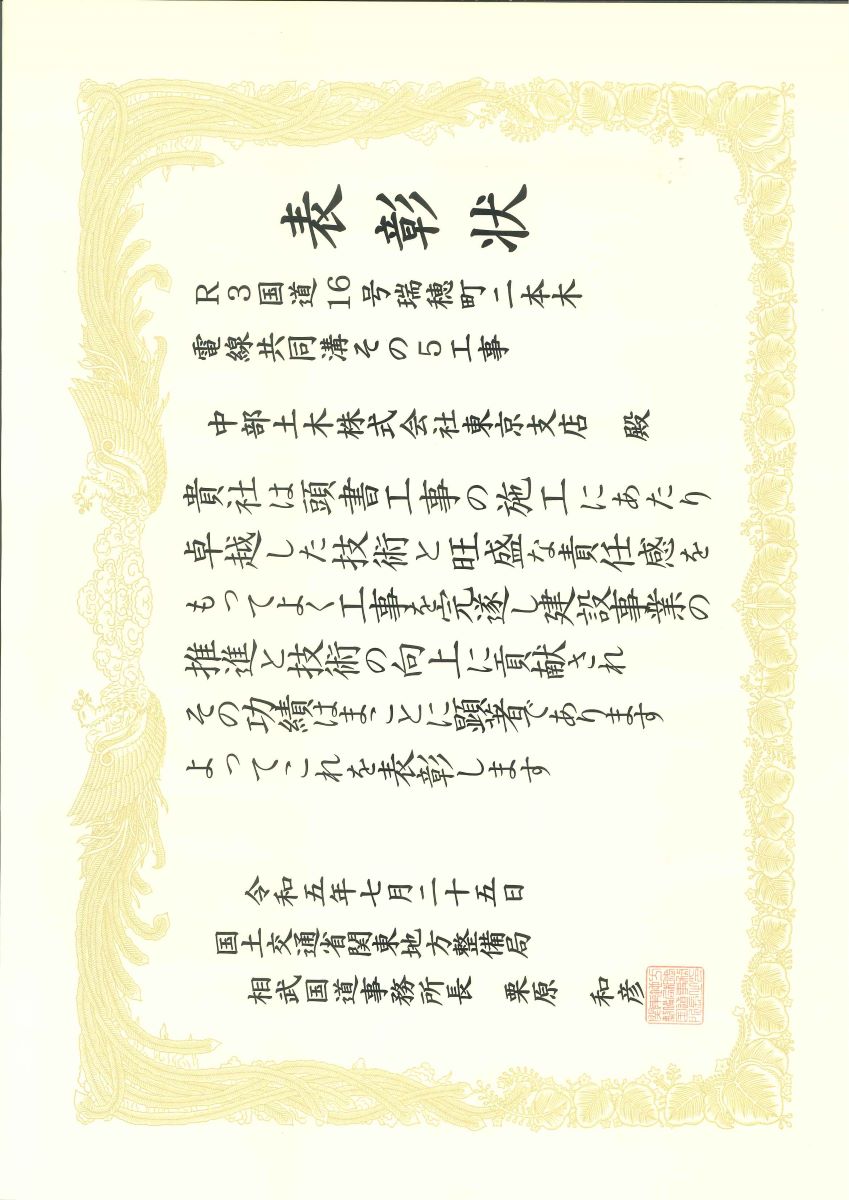 表彰状
R3国道16号瑞穂町二本木
電線共同溝その5工事
中部土木株式会社東京支店 殿
貴社は頭書工事の施工にあたり
卓越した技術と旺盛な責任感を
もってよく工事を完遂し建設事業の
推進と技術の向上に貢献され
その功績はまことに顕著であります
よってこれを表彰します
令和五年七月二十五日
国土交通省関東地方整備局
相武国道事務所長 栗原 和彦